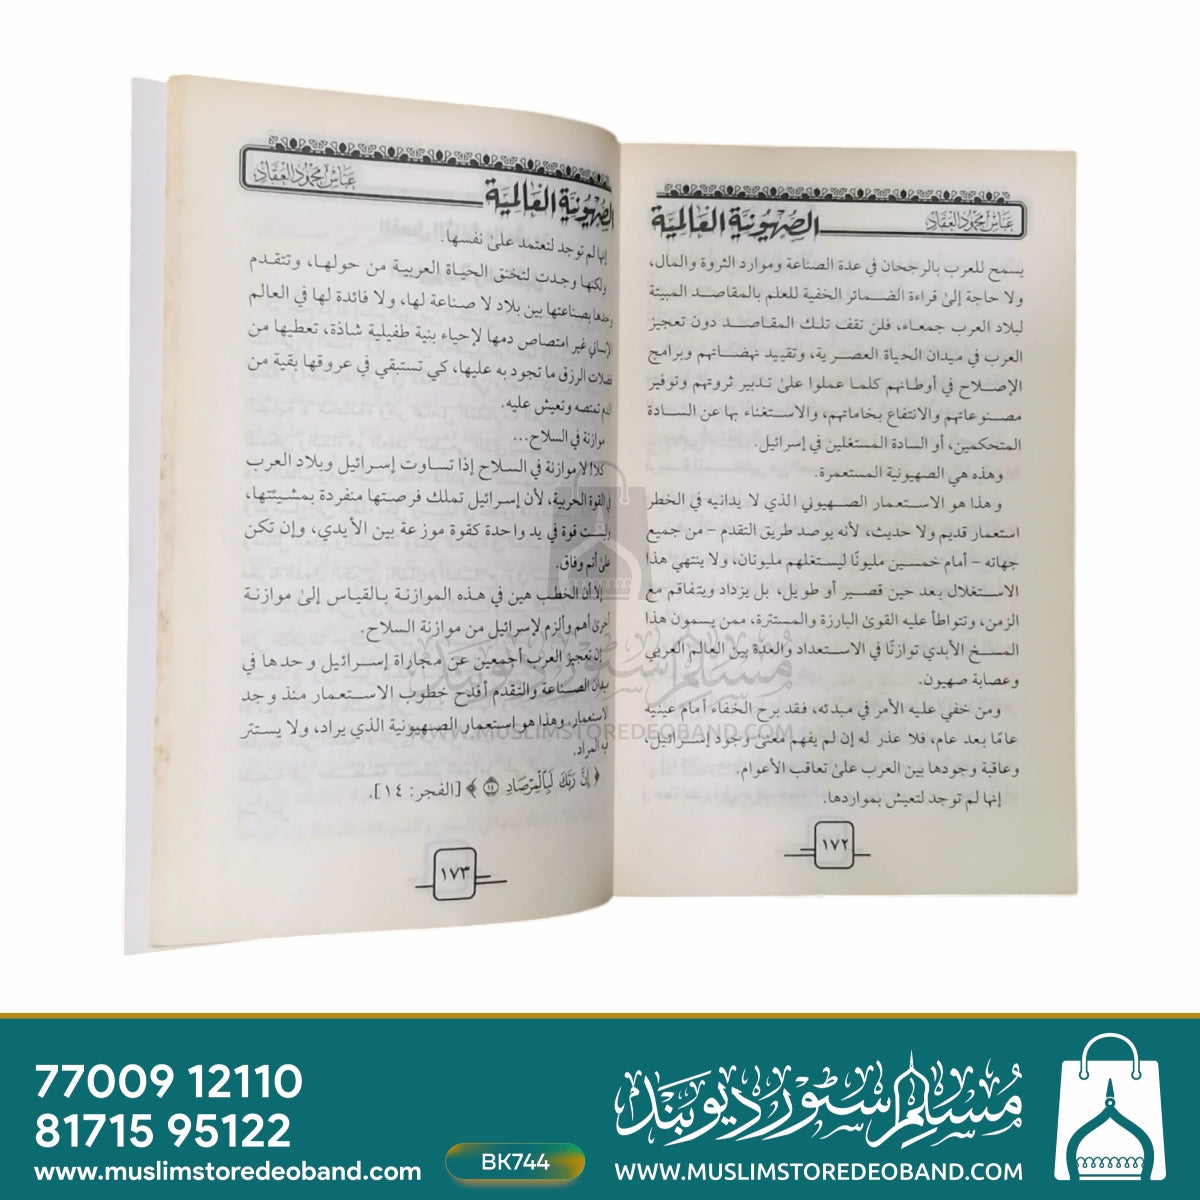 الصهيونية العالمية
عباس محمود العقاد
يسمح للعرب بالرجحان في عدة الصناعة وموارد الثروة والمال،
ولا حاجة إلى قراءة الضمائر الخفية للعلم بالمقاصد المبيتة
لبلاد العرب جمعاء، فلن تقف تلك المقاصد دون تعجيز
العرب في ميدان الحياة العصرية، وتقييد نهضاتهم وبرامج
الإصلاح في أوطانهم كلما عملوا على تدبير ثروتهم وتوفير
مصنوعاتهم والانتفاع بخاماتهم، والاستغناء بها عن السادة
المتحكمين، أو السادة المستغلين في إسرائيل.
وهذه هي الصهيونية المستعمرة.
وهذا هو الاستعمار الصهيوني الذي لا يدانيه في الخطر
استعمار قديم ولا حديث، لأنه يوصد طريق التقدم – من جميع
جهاته – أمام خمسين مليونًا ليستغلهم مليونان، ولا ينتهي هذا
الاستغلال بعد حين قصير أو طويل، بل يزداد ويتفاقم مع
الزمن، وتتواطأ عليه القوى البارزة والمستترة، ممن يسمون هذا
المسخ الأبدي توازنًا في الاستعداد والعدة بين العالم العربي
وعصابة صهيون.
ومن خفي عليه الأمر في مبدئه، فقد برح الخفاء أمام عينيه
عامًا بعد عام، فلا عذر له إن لم يفهم معنى وجود إسرائيل،
وعاقبة وجودها بين العرب على تعاقب الأعوام.
إنها لم توجد لتعيش بمواردها.
١٧٢
الصهيونية العالمية
عباس محمود العقاد
إنها لم توجد لتعتمد على نفسها.
ولكنها وجدت لتخنق الحياة العربية من حولها، وتتقدم
وحدها بصناعتها بين بلاد لا صناعة لها، ولا فائدة لها في العالم
الإنساني غير امتصاص دمها لإحياء بنية طفيلية شاذة، تعطيها من
فضلات الرزق ما تجود به عليها، كي تستبقي في عروقها بقية من
الدم تمتصه وتعيش عليه.
موازنة في السلاح...
كلا! لا موازنة في السلاح إذا تساوت إسرائيل وبلاد العرب
في القوة الحربية، لأن إسرائيل تملك فرصتها منفردة بمشيئتها،
وليست قوة في يد واحدة كقوة موزعة بين الأيدي، وإن تكن
على أتم وفاق.
إلا أن الخطب هين في هذه الموازنة بالقياس إلى موازنة
أخرى أهم وألزم لإسرائيل من موازنة السلاح.
إن تعجيز العرب أجمعين عن مجاراة إسرائيل وحدها في
ميدان الصناعة والتقدم أفدح خطوب الاستعمار منذ وجد
الاستعمار. وهذا هو استعمار الصهيونية الذي يراد، ولا يستتر
به المراد.
﴿ إِنَّ رَبَّكَ لَبِالْمِرْصَادِ ١٤ ﴾ [الفجر: ١٤].
١٧٣
مسلم ستور ديوبند
WWW.MUSLIMSTOREDEOBAND.COM
77009 12110
81715 95122
www.muslimstoredeoband.com
BK744
مسلم ستور ديوبند
WWW.MUSLIMSTOREDEOBAND.COM